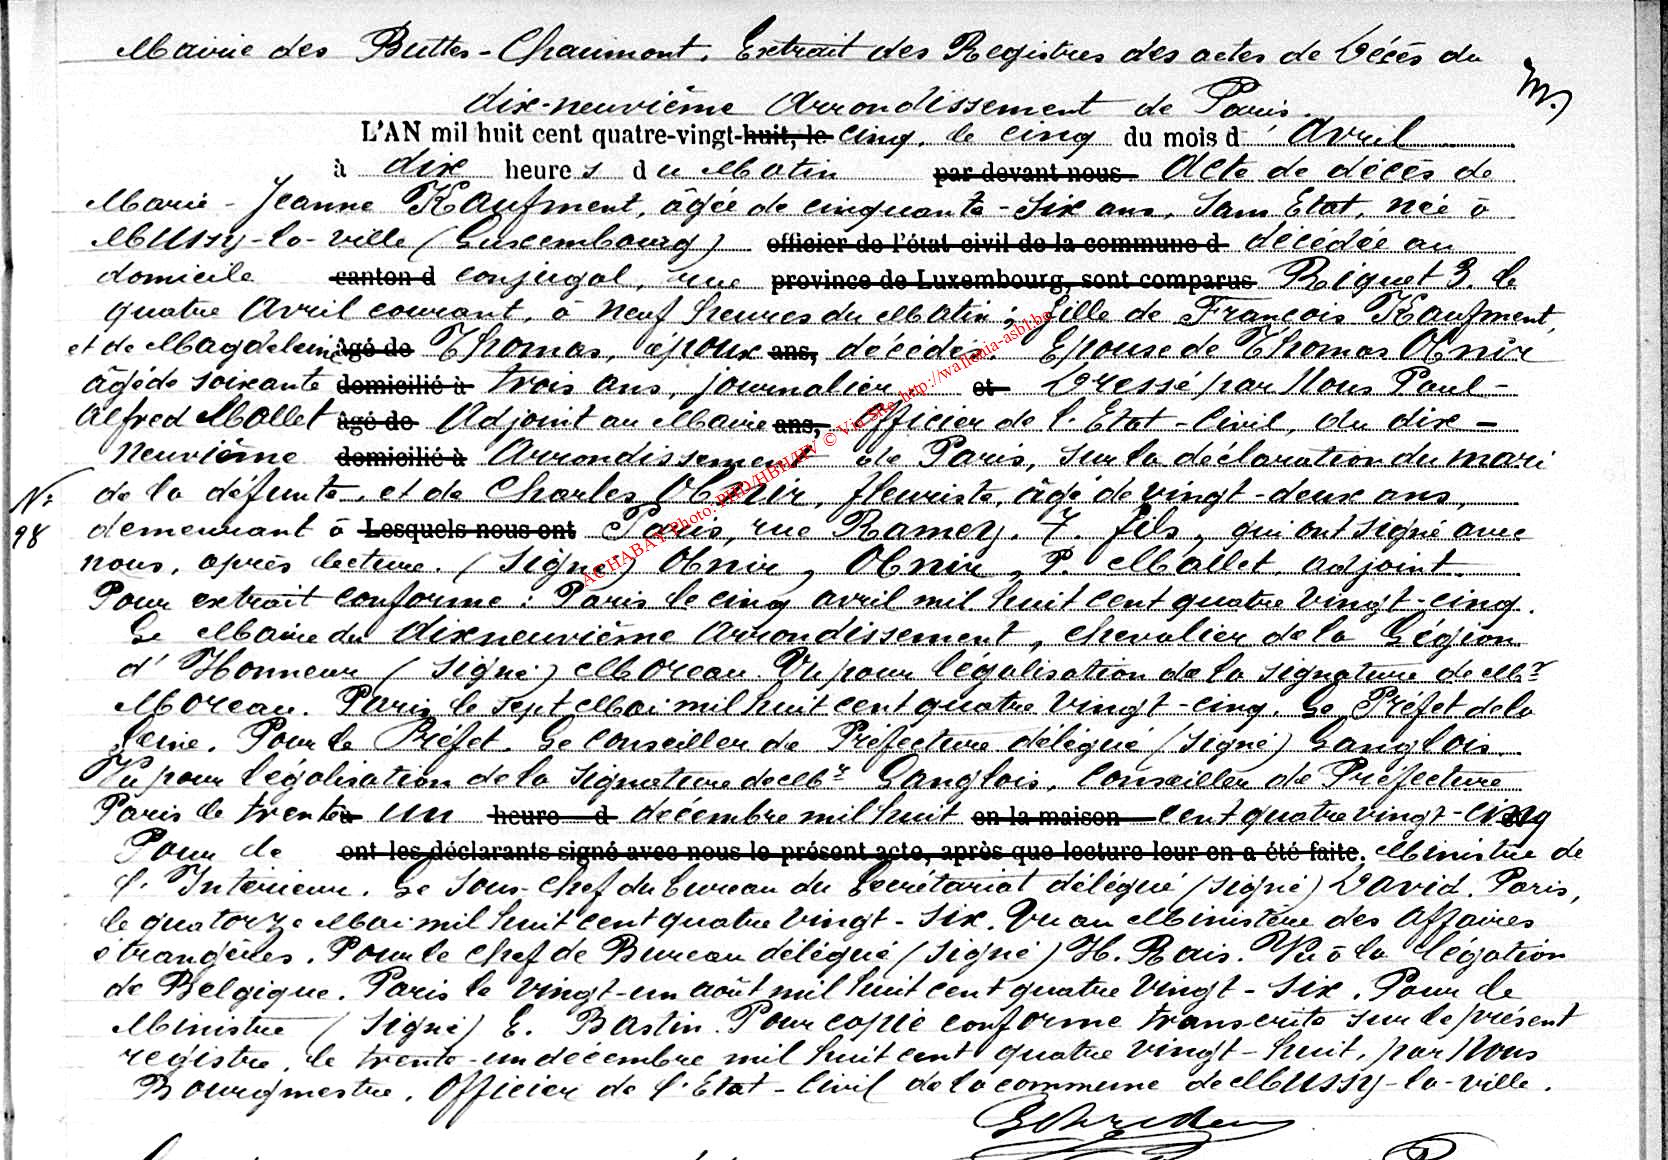 Mairie des Buttes-Chaumont. Extrait des Registres des actes de Décès du
dix-neuvième Arrondissement de Paris.
L'AN mil huit cent quatre-vingt-huit, le cinq, le cinq du mois d'Avril
à dix heures du Matin par devant nous Acte de décès de
Marie-Jeanne Kaufment, âgée de cinquante-six ans, sans Etat, née à
Mussy-la-ville (Luxembourg) officier de l'état civil de la commune d décédée au
domicile canton d conjugal, rue province de Luxembourg, sont comparus Riquet 3. le
quatre Avril courant, à neuf heures du Matin; fille de François Kaufment,
et de Magdeleine âgé de Thomas, époux ans, décédés. Epouse de Thomas Obnir
âgé de soixante domicilié à trois ans, journalier et Dressé par Nous Paul-
Alfred Mallet âgé de Adjoint au Maire ans, Officier de l'Etat-Civil, du dix-
neuvième domicilié à Arrondissement de Paris, sur la déclaration du mari
N° de la défunte, et de Charles Obnir, fleuriste, âgé de vingt-deux ans,
98 demeurant à Lesquels nous ont Paris, rue Ramey. 7. fils, qui ont signé avec
nous, après lecture. (signé) Obnir, Obnir, P. Mallet, adjoint.
Pour extrait conforme: Paris le cinq avril mil huit cent quatre vingt-cinq.
Le Maire du dixneuvième Arrondissement, chevalier de la Légion
d'Honneur (signé) Moreau. Vu pour légalisation de la signature de Mr
Moreau. Paris le sept Mai mil huit cent quatre vingt-cinq. Le Préfet de la
Seine. Pour le Préfet. Le Conseiller de Préfecture délégué (signé) Langlois.
Vu pour légalisation de la signature de Mr Langlois, Conseiller de Préfecture
Paris le trente à un heure d décembre mil huit en la maison cent quatre vingt-cinq
Pour le ont les déclarants signé avec nous le présent acte, après que lecture leur en a été faite. Ministre de
l'Intérieur. Le Sous-Chef du bureau du Secrétariat délégué (signé) David. Paris,
le quatorze Mai mil huit cent quatre vingt-six. Vu au Ministère des Affaires
étrangères. Pour le chef de Bureau délégué (signé) H. Rais. Vu à la Légation
de Belgique. Paris le vingt-un août mil huit cent quatre vingt-six. Pour le
Ministre (signé) E. Bastin. Pour copie conforme transcrite sur le présent
registre, le trente-un décembre mil huit cent quatre vingt-huit, par Nous
Bourgmestre, Officier de l'Etat-Civil de la commune de Mussy-la-ville.
AC HABAY Photo: PHD/HBH/HV © Via Site http://wallonia-asbl.be